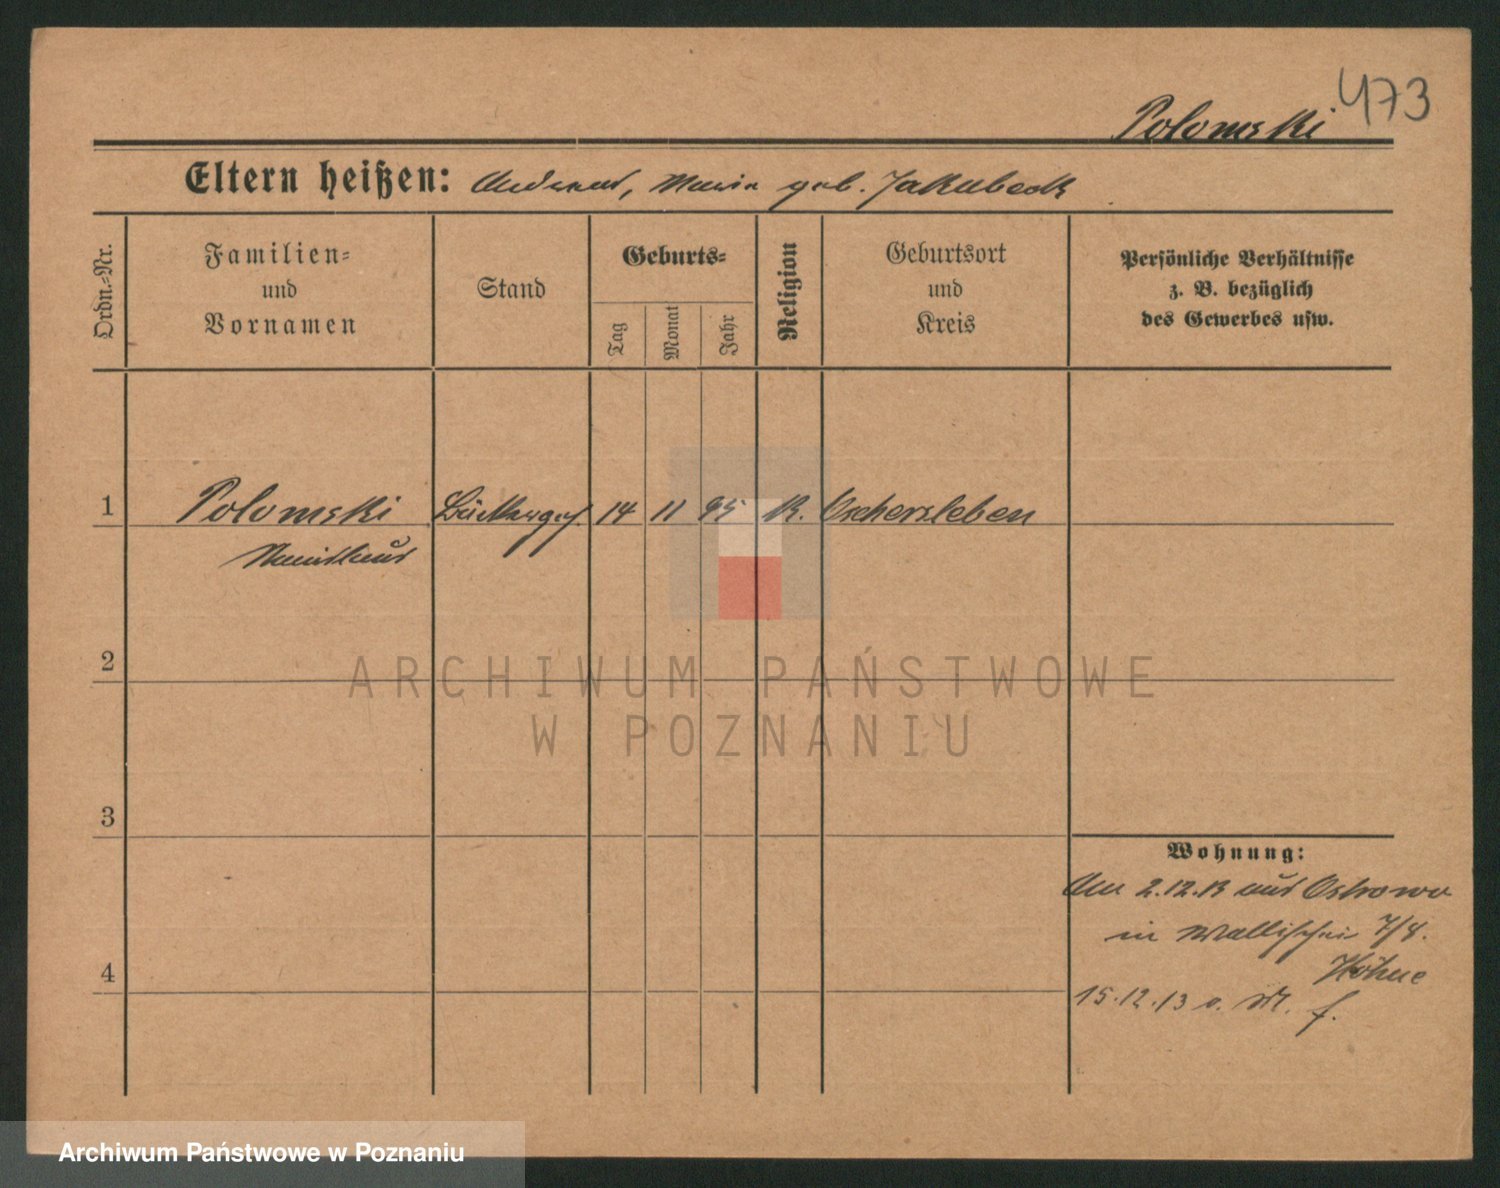 473
Polomski
Eltern heißen: Andreas, Maria geb. Jakubeck
Ordn.-Nr.
Familien-
und
Vornamen
Stand
Geburts-
Tag
Monat
Jahr
Religion
Geburtsort
und
Kreis
Persönliche Verhältnisse
z. B. bezüglich
des Gewerbes usw.
1 Polomski Bäckerges. 14 11 95 K. Oschersleben
Stanislaus
2
ARCHIWUM PAŃSTWOWE
W POZNANIU
3
Wohnung:
Am 2.12.13 aus Ostrowo
in Wallischei 7/8.
Höhne
4
15.12.13 v. M. f.
Archiwum Państwowe w Poznaniu